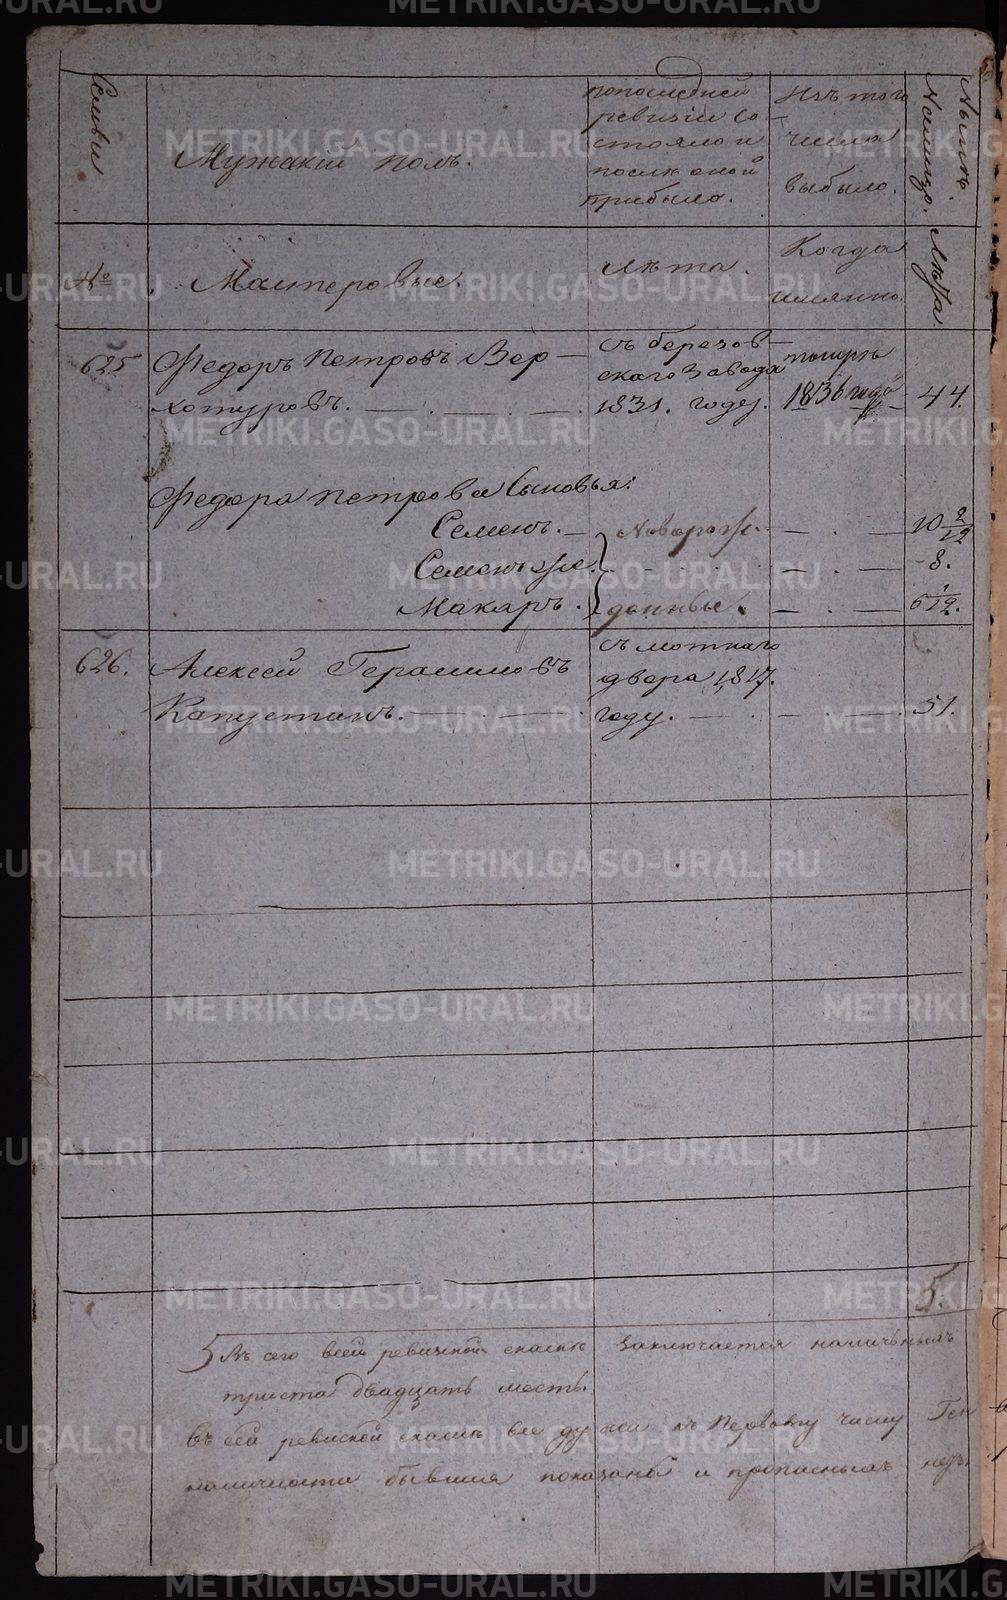 Семьи
Мужский полъ.
попоследней
ревизiи со-
стояло и
после оной
прибыло.
Изъ того
числа
выбыло.
Ныне
Налицо.
№
Мастеровые.
Лета.
Когда
имянно.
Лета.
625
Федоръ Петровъ Вер-
хотуровъ.
съ березов-
скаго завода
1831. году.
1836 года
44.
Федора Петрова Сыновья:
Семенъ.
Новорож-
10 2/12
Семенъ же.
8.
Макаръ.
денные.
6 1/12.
626.
Алексей Герасимовъ
Капустинъ.
съ мотнаго
двора 1817.
году.
51.
5.
5 Въ сего всей ревизкой сказке заключается наличныхъ
триста двадцать шесть.
Въ сей ревиской сказке все души къ Первому числу Ген
наличности бывшия показаны и прописныхъ нетъ
METRIKI.GASO-URAL.RU